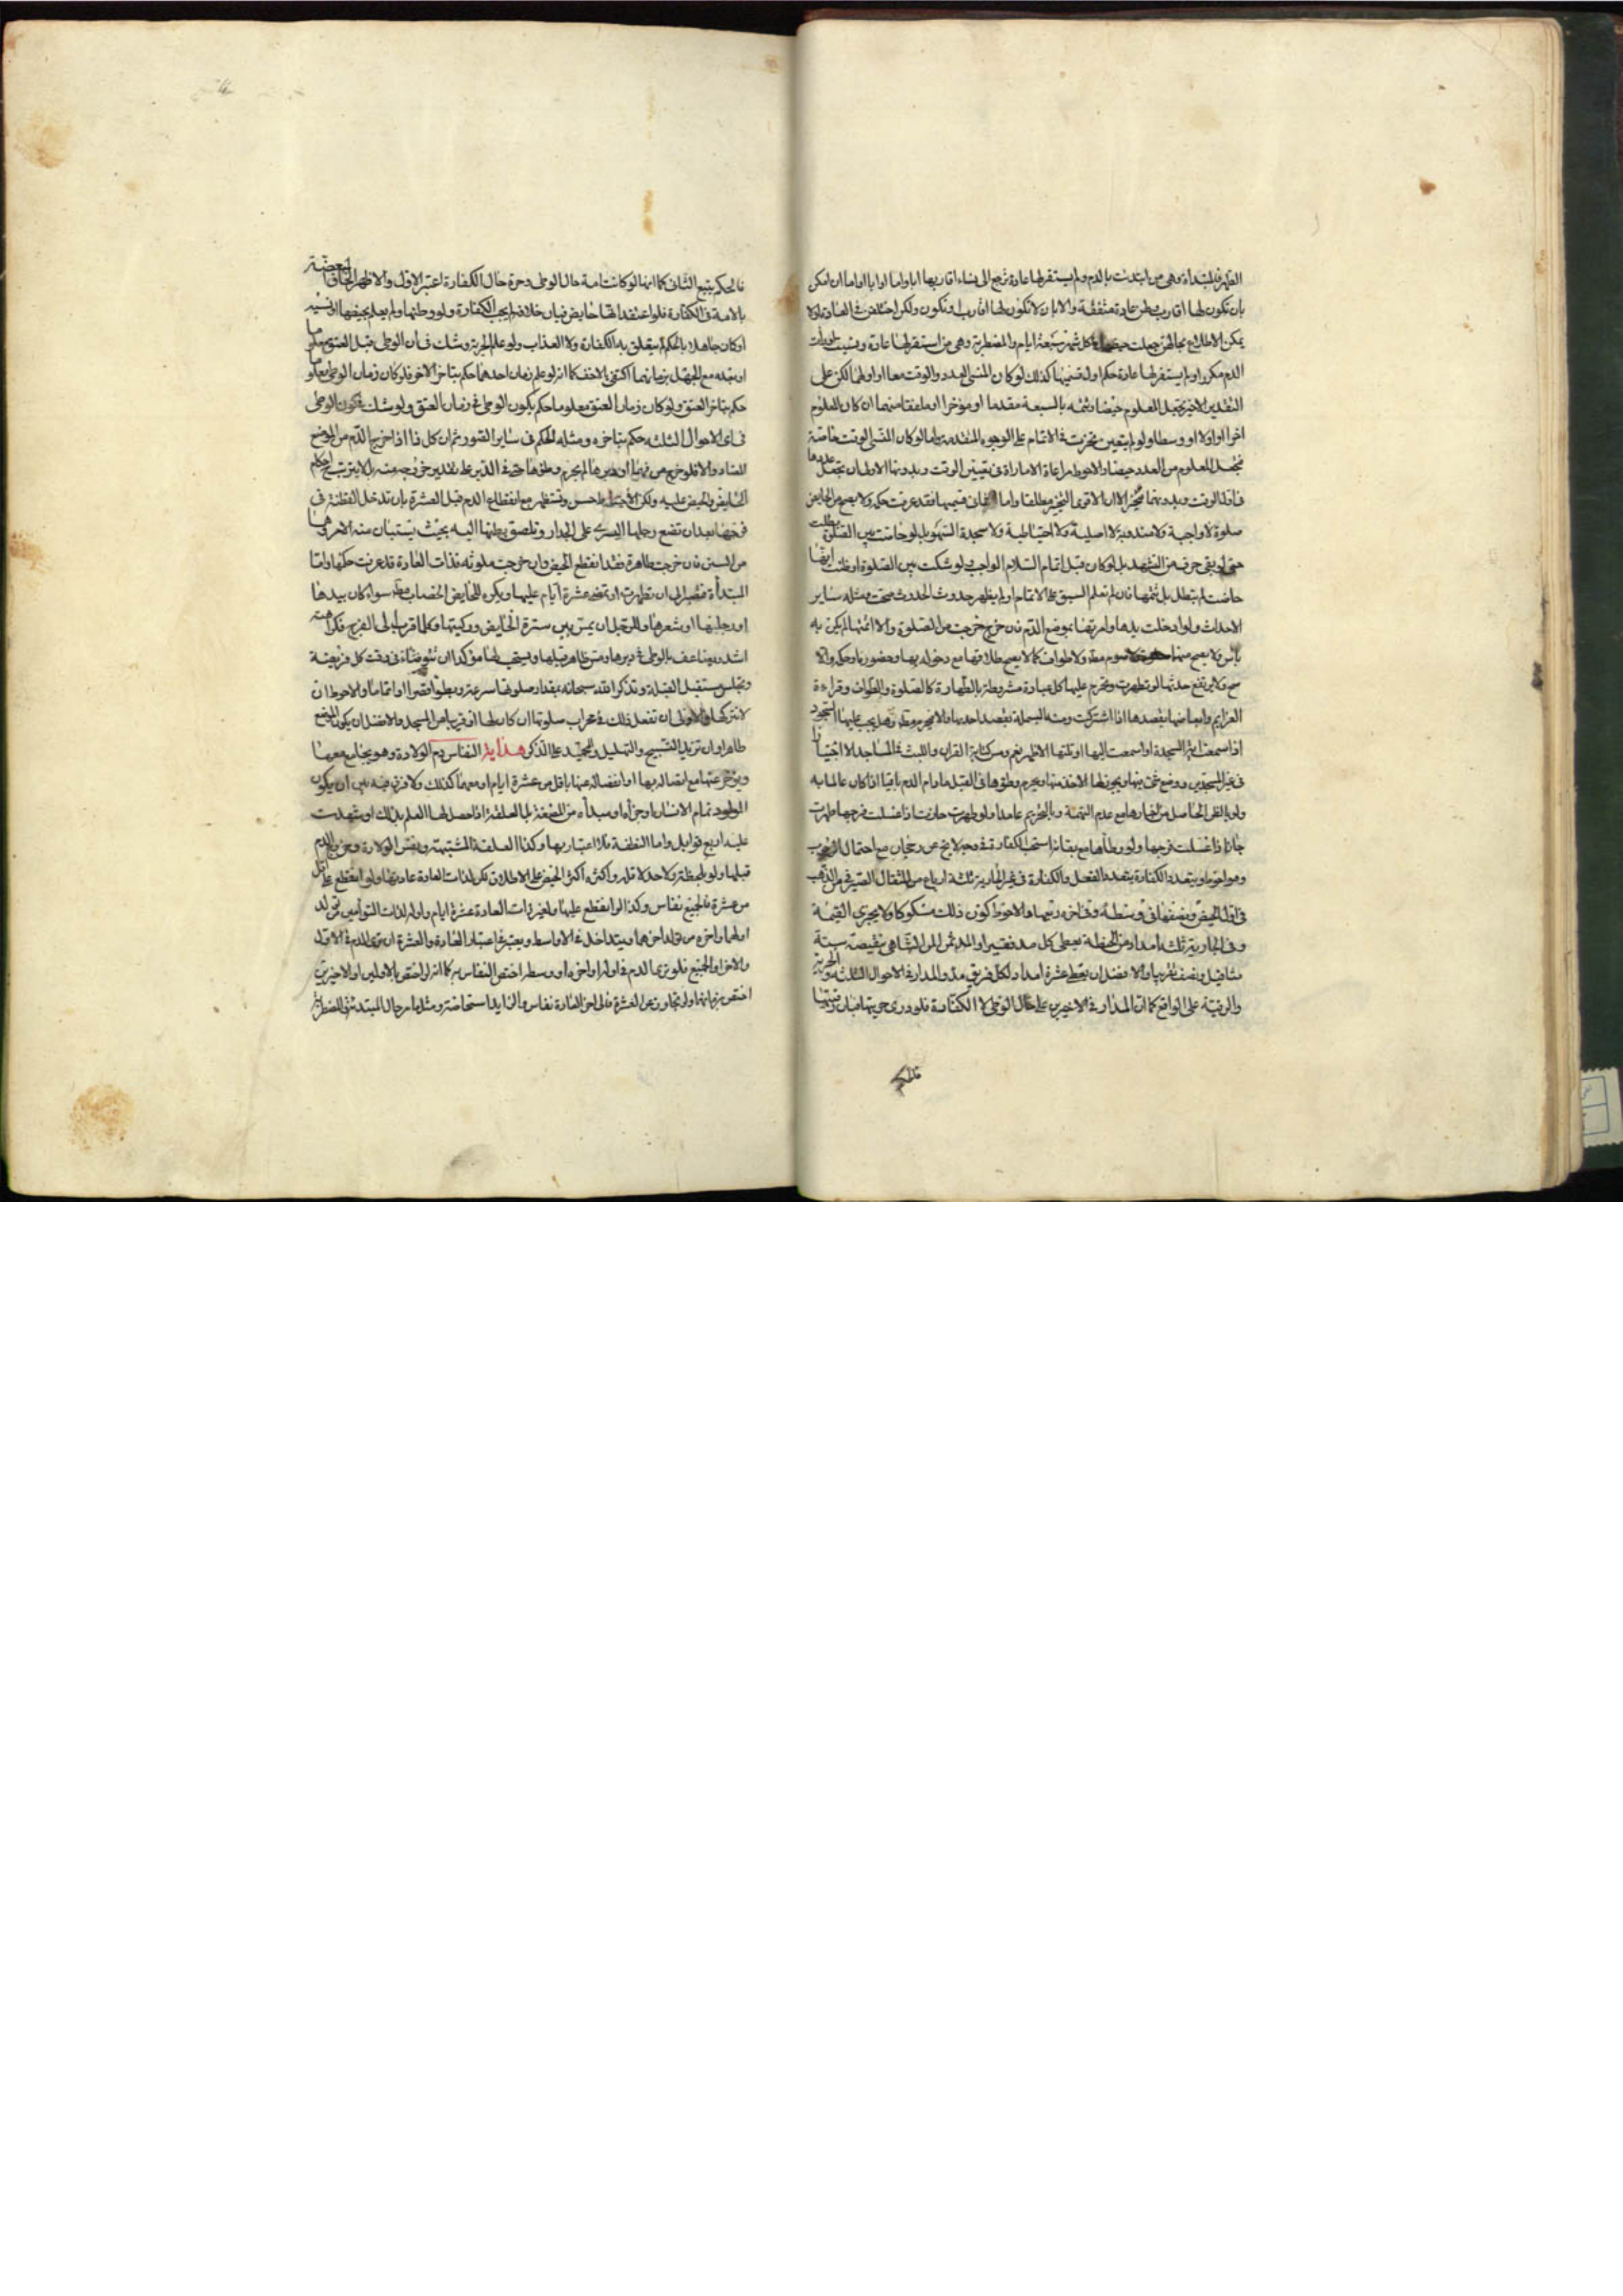 الظهر فالمبتداة وهي من ابتدئت بالدم ولم يستقر لها عادة ترجع الى نساء اقاربها ابا واما او ابا او اما ان امكن
بان تكون لها اقارب وطن عادة متفقة والا بان لا تكون لها اقارب او تكون ولكن اختلفن في العادة او لا
يمكن الاطلاع بحالهن جعلت حيضها في كل شهر سبعة ايام والمضطربة وهي من استقر لها عادة ونسيت
الدم مكررا ولم يستقر لها عادة حكم اوله لو كان المنسي العدد والوقت معا او اولهما لكن على
التقدير الاخير يجعل المعلوم حيضا وتتمه بالسبعة مقدما او مؤخرا او ملفقا منهما ان كان المعلوم
اخرا او اولا او وسطا ولو لم يتعين تخيرت في الاتمام على الوجوه المتقدمة واما لو كان المنسي الوقت خاصة
فتجعل المعلوم من العدد حيضا والاحوط مراعاة الامارة في تعيين الوقت وبدونها الاولى ان تجعل عددها
في اول الوقت وبدونها تتخير الا ان الاقوى التخيير مطلقا واما فقد عرفت حكمه ولا يصح من الحايض
صلوة لا واجبة ولا مندوبة لا اصلية ولا احتياطية ولا سجدة السهو بل لو حاضت بين الصلوة بطلت
حتى لو بقى حرف من التشهد بل لو كان قبل اتمام السلام الواجب ولو شكت بين الصلوة او ظنت انها
حاضت لم تبطل بل تتمها فان لم تعلم السبق على الاتمام او لم يظهر حدوث الحدوث صحت ومثله ساير
الاحداث ولو ادخلت يدها وامرتها بموضع الدم فان خرج خرجت من الصلوة والا اتمتها لم يكن به
باس ولا يصح منها صوم مطلقا ولا طواف كما لا يصح طلاقها مع دخوله بها وحضوره او حكمه والا
صح ولا يرتفع حدثها لو تطهرت ويحرم عليها كل عبادة مشروطة بالطهارة كالصلوة والطواف وقراءة
العزايم وابعاضها بقصدها اذا اشتركت ومنه البسملة بقصد احديها والا لم يحرم وهل يجب عليها السجود
اذا سمعت اية السجدة او استمعت اليها او تلتها الاظهر نعم ومس كتابة القران واللبث في المساجد الا اجتيازا
في غير المسجدين ووضع شيء فيها ويجوز لها الاخذ منها ويحرم وطؤها في القبل ما دام الدم باقيا اذا كان عالما به
ولو بالظن الحاصل من اخبارها مع عدم التهمة وبالتحريم عامدا ولو طهرت جاز اذا غسلت فرجها
جاز اذا غسلت فرجها ولو وطاها مع بقائه استحب الكفارة وقيل لا يخ عن رجحان مع احتمال الوجوب
وهو احوط ويتعدد الكفارة بتعدد الفعل والكفارة في غير الجارية ثلثة ارباع من المثقال الصيرفي من الذهب
في اول الحيض ونصفها في وسطه وفي اخره ربعها والاحوط كون ذلك مسكوكا ولا يجزي القيمة
وفي الجارية ثلثة امداد من الحنطة يعطى كل مد فقيرا والمد ثمن المن الشاهي بنقيصة ستة
مثاقيل ونصف تقريبا والافضل ان يعطى عشرة امداد لكل فريق مد والمدار في الاحوال الثلثة والحرية
والرقية على الواقع كما ان المدار في الاخيرين على حال الوطي لا الكفارة فلو درى حريتها فبان رقيتها
فالحكم
فالحكم يتبع الثاني كما انها لو كانت امة حال الوطي وحرة حال الكفارة اعتبر الاول والاظهر الحاق المبعضة
بالامة في الكفارة فلو اعتقد انها حايض فبان خلافه لم يجب الكفارة ولو وطئها ولم يعلم بحيضها او نسيه
او كان جاهلا بالحكم لم يتعلق به الكفارة ولا العذاب ولو علم الحرية وشك في ان الوطي قبل العتق
او بعده مع الجهل بزمانهما اكتفي بالاخف كما انه لو علم زمان احدهما حكم بتاخر الاخر فلو كان زمان الوطي معلوما
حكم بتاخر العتق ولو كان زمان العتق معلوما حكم بكون الوطي في زمان العتق ولو شك في كون الوطي
في اي الاحوال الثلثة حكم بتاخره ومثله الحكم في ساير الصور ثم ان كل ذا اذا خرج الدم من الموضع
المعتاد والا فلو خرج من فمها او غيرها لم يحرم وطؤها حتى في الدبر على تقدير خروجه منه بل لا يترتب احكام
الحايض والحيض عليه ولكن الاحتياط حسن وتستظهر مع انقطاع الدم قبل العشرة بان تدخل القطنة في
فرجها بعد ان تضع رجلها اليسرى على الجدار وتلصق بطنها اليه بحيث يستبان منه الامر
من السنن فان خرجت طاهرة فقد انقطع الحيض وان خرجت ملوثة فذات العادة قد عرفت حكمها واما
المبتداة فتصبر الى ان تطهرت او تمضي عشرة ايام عليها ويكره للحايض الخضاب سواء كان بيدها
او رجليها او شعرها وللرجل ان يمس بين سترة الحايض وركبتها وكلما قرب الى الفرج فكراهته
اشد ويضاعف بالوطي في دبرها ومس ظاهر قبلها ويستحب لها مؤكدا ان تتوضاء في وقت كل فريضة
وتجلس مستقبل القبلة وتذكر الله سبحانه بمقدار صلوتها سرعة وبطؤا قصرا او اتماما والاحوط ان
لا تتركها والاولى ان تفعل ذلك في محراب صلوتها ان كان لها او قريبا من المسجد والافضل ان يكون الموضع
طاهرا وان تزيد التسبيح والتهليل والتحميد على الذكر هداية النفاس دم الولادة وهو يجامع معها
ويتاخر عنها مع اتصاله بها او انفصاله عنها باقل من عشرة ايام او معهما كذلك ولا فرق فيه بين ان يكون
المولود تمام الانسان او جزأه او مبدأه من المضغة بل العلقة اذا حصل لها العلم بذلك او شهدت
عليه اربع قوابل واما النطفة فلا اعتبار بها وكذا العلقة المشتبهة ونفس الولادة وخروج الدم
قبلها ولو بلحظة ولا حد لاقله واكثره اكثر الحيض على الاطلاق لكن لذات العادة عادتها ولو انقطع على اقل
من عشرة فالجميع نفاس وكذا لو انقطع عليها ولغير ذات العادة عشرة ايام واوله لذات التوأمين من تولد
اولهما واخره من تولد اخرهما ويتداخل في الاواسط ويعتبر في اعتبار العادة والعشرة ان ترى الدم في الاول
والاخر او الجميع فلو ترى الدم في اوله او اخره او وسطه اختص النفاس به كما انه لو اختص بالاولين او الاخيرين
اختص بزمانهما ولو تجاوز عن العشرة فالى اخر العادة نفاس والزايد استحاضة ومثلها مر حال المبتدئة والمضطربة